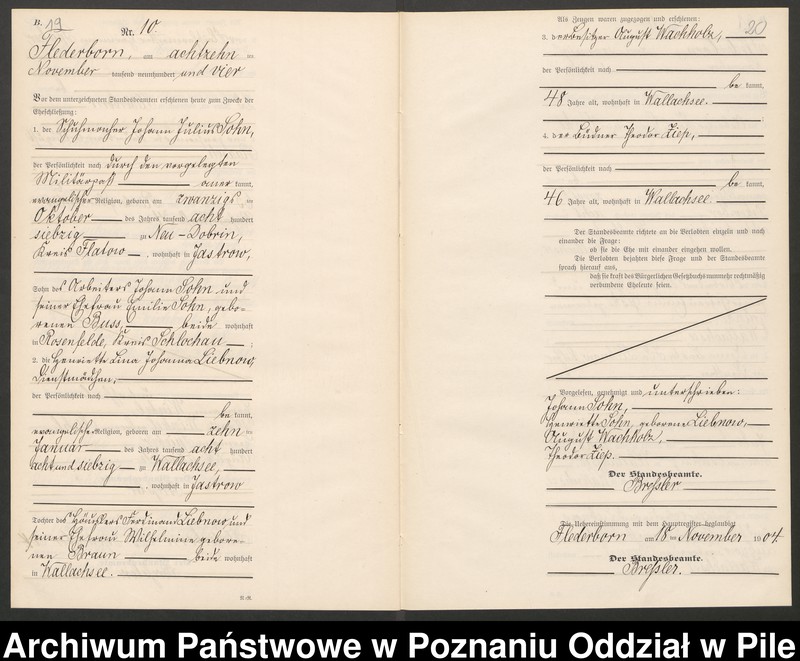 B.
19
Nr. 10.
Flederborn, am achtzehn ten
November tausend neunhundert und vier
Vor dem unterzeichneten Standesbeamten erschienen heute zum Zwecke der
Eheschließung:
1. der Schuhmacher Johann Julius Sohn,
der Persönlichkeit nach durch den vorgelegten
Militärpaß anerkannt,
evangelischer Religion, geboren am zwanzigsten
Oktober des Jahres tausend acht hundert
siebzig zu Neu-Dobrin,
Kreis Flatow, wohnhaft in Jastrow,
Sohn des Arbeiters Johann Sohn und
seiner Ehefrau Emilie Sohn, gebo-
renen Buss, beide wohnhaft
in Rosenfelde, Kreis Schlochau;
2. die Henriette Lina Johanna Liebnow,
Dienstmädchen,
der Persönlichkeit nach
be kannt,
evangelischer Religion, geboren am zehn ten
Januar des Jahres tausend acht hundert
achtundsiebzig zu Wallachsee,
, wohnhaft in Jastrow
Tochter des Häuslers Ferdinand Liebnow und
seiner Ehefrau Wilhelmine gebore-
nen Braun beide wohnhaft
in Wallachsee.
20
Als Zeugen waren zugezogen und erschienen:
3. der Besitzer August Wachholz,
der Persönlichkeit nach
be kannt,
48 Jahre alt, wohnhaft in Wallachsee.
4. der Büdner Theodor Ziep,
der Persönlichkeit nach
be kannt,
46 Jahre alt, wohnhaft in Wallachsee.
Der Standesbeamte richtete an die Verlobten einzeln und nach
einander die Frage:
ob sie die Ehe mit einander eingehen wollen.
Die Verlobten bejahten diese Frage und der Standesbeamte
sprach hierauf aus,
daß sie kraft des Bürgerlichen Gesetzbuchs nunmehr rechtmäßig
verbundene Eheleute seien.
Vorgelesen, genehmigt und unterschrieben:
Johann Sohn,
Henriette Sohn, geborene Liebnow,
August Wachholz,
Theodor Ziep.
Der Standesbeamte.
Bressler
Die Uebereinstimmung mit dem Hauptregister beglaubigt
Flederborn am 18 ten November 1904
Der Standesbeamte.
Bressler.
Archiwum Państwowe w Poznaniu Oddział w Pile